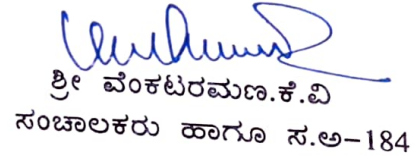 ಶ್ರೀ ವೆಂಕಟರಮಣ.ಕೆ.ವಿ
ಸಂಚಾಲಕರು ಹಾಗೂ ಸ.ಅ-184